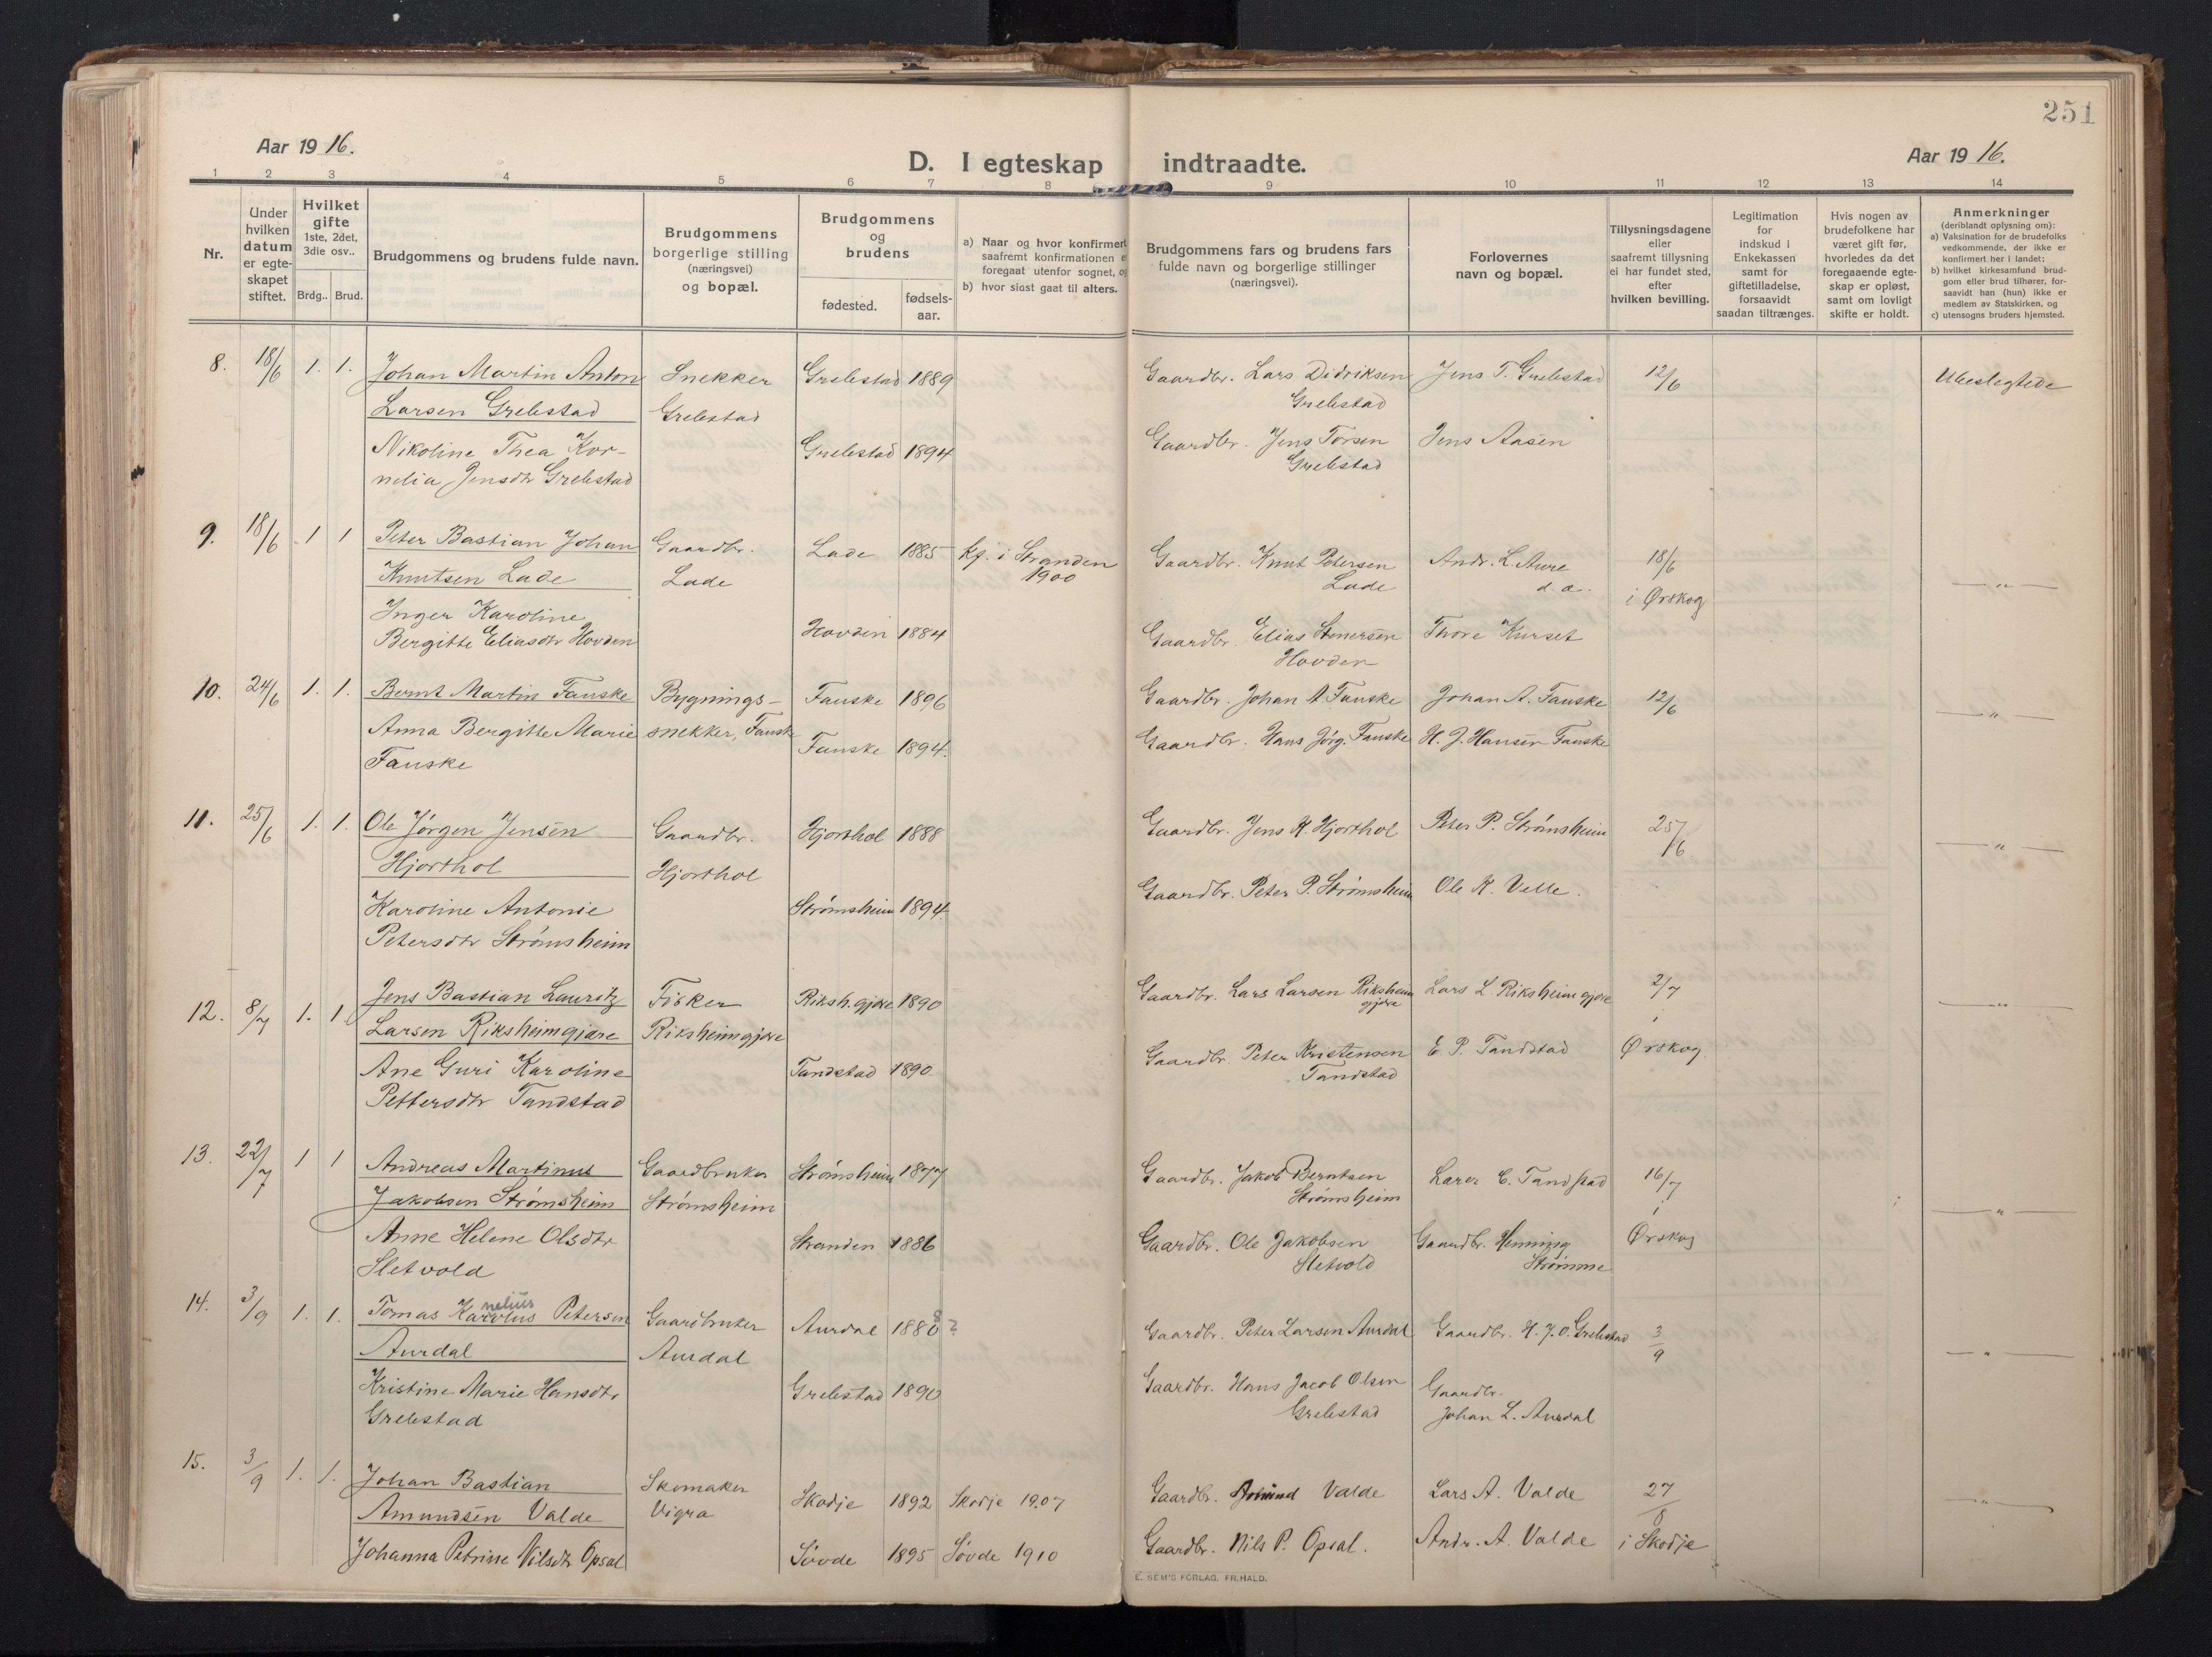 251
Aar 19 16.
D. I egteskap indtraadte.
Aar 19 16.
1 2 3 4 5 6 7 8 9 10 11 12 13 14
Nr.
Under hvilken datum er egte-skapet stiftet.
Hvilket gifte 1ste, 2det, 3die osv..
Brdg.. Brud.
Brudgommens og brudens fulde navn.
Brudgommens borgerlige stilling (næringsvei) og bopæl.
Brudgommens og brudens
fødested. fødsels-aar.
a) Naar og hvor konfirmert saafremt konfirmationen e foregaat utenfor sognet, og
b) hvor sidst gaat til alters.
Brudgommens fars og brudens fars fulde navn og borgerlige stillinger (næringsvei).
Forlovernes navn og bopæl.
Tillysningsdagene eller saafremt tillysning ei har fundet sted, efter hvilken bevilling.
Legitimation for indskud i Enkekassen samt for giftetilladelse, forsaavidt saadan tiltrænges.
Hvis nogen av brudefolkene har været gift før, hvorledes da det foregaaende egte-skap er opløst, samt om lovligt skifte er holdt.
Anmerkninger (deriblandt oplysning om):
a) Vaksination for de brudefolks vedkommende, der ikke er konfirmert her i landet;
b) hvilket kirkesamfund brud-gom eller brud tilhører, for-saavidt han (hun) ikke er medlem av Statskirken, og
c) utensogns bruders hjemsted.
8. 18/6 1. 1. Johan Martin Anton Snekker Grebestad 1889 Gaardbr. Lars Didriksen Jens T. Grebestad 12/6 Ubeslegtede
Larsen Grebestad Grebestad Grebestad
Nikoline Thea Kor- Grebestad 1894 Gaardbr. Jens Torsen Jens Aasen
nelia Jensdtr Grebestad Grebestad
9. 18/6 1 1 Peter Bastian Johan Gaardbr. Lade 1885 kf. i Stranden Gaardbr. Knut Petersen Andr. L. Aure 18/6 — " —
Knutsen Lade Lade 1900 Lade d. æ. i Ørskog
Inger Karoline Hovden 1884 Gaardbr. Elias Stenersen Thore Kurset
Bergitte Eliasdtr Hovden Hovden
10. 24/6 1. 1. Bernt Martin Fauske Bygnings- Fauske 1896 Gaardbr. Johan A. Fauske Johan A. Fauske 12/6 — " —
Anna Bergitte Marie snekker, Fauske Fauske 1894. Gaardbr. Hans Jørg. Fauske H. J. Hansen Fauske
Fauske
11. 25/6 1. 1. Ole Jørgen Jensen Gaardbr. Hjorthol 1888 Gaardbr. Jens K. Hjorthol Peter P. Strømsheim 25/6 — " —
Hjorthol Hjorthol
Karoline Antonie Strømsheim 1894. Gaardbr. Peter P. Strømsheim Ole K. Velle.
Petersdtr Strømsheim
12. 8/7 1. 1 Jens Bastian Lauritz Fisker Riksh.gjære 1890 Gaardbr. Lars Larsen Riksheim gjære Lars L. Riksheimgjære 2/7 — " —
Larsen Riksheimgjære Riksheimgjære i
Ane Guri Karoline Tandstad 1890 Gaardbr. Peter Kristensen E. P. Tandstad Ørskog
Pettersdtr Tandstad Tandstad
13. 22/7 1 1 Andreas Martinus Gaardbruker Strømsheim 1877 Gaardbr. Jakob Berntsen Lærer E. Tandstad 16/7 — " —
Jakobsen Strømsheim Strømsheim Strømsheim i
Anne Helene Olsdtr Stranden 1886 Gaardbr. Ole Jakobsen Gaardbr. Henning Ørskog
Sletvold Sletvold Strømme
14. 3/9 1. 1. Tomas Karolus nelius Petersen Gaardbruker Aurdal 1880 8? Gaardbr. Peter Larsen Aurdal Gaardbr. H. J. O. Grebestad 3/9 — " —
Aurdal Aurdal
Kristine Marie Hansdtr Grebestad 1890 Gaardbr. Hans Jacob Olsen Gaardbr.
Grebestad Grebestad Johan L. Aurdal
15. 3/9 1. 1. Johan Bastian Skomaker Skodje 1892 Skodje 1907 Gaardbr. Valde Lars A. Valde 27/8 — " —
Amundsen Valde Vigra
Johanna Petrine Nilsdtr Opsal Søvde 1895 Søvde 1910 Gaardbr. Nils P. Opsal. Andr. A. Valde i Skodje
E. SEM'S FORLAG, FR.HALD.